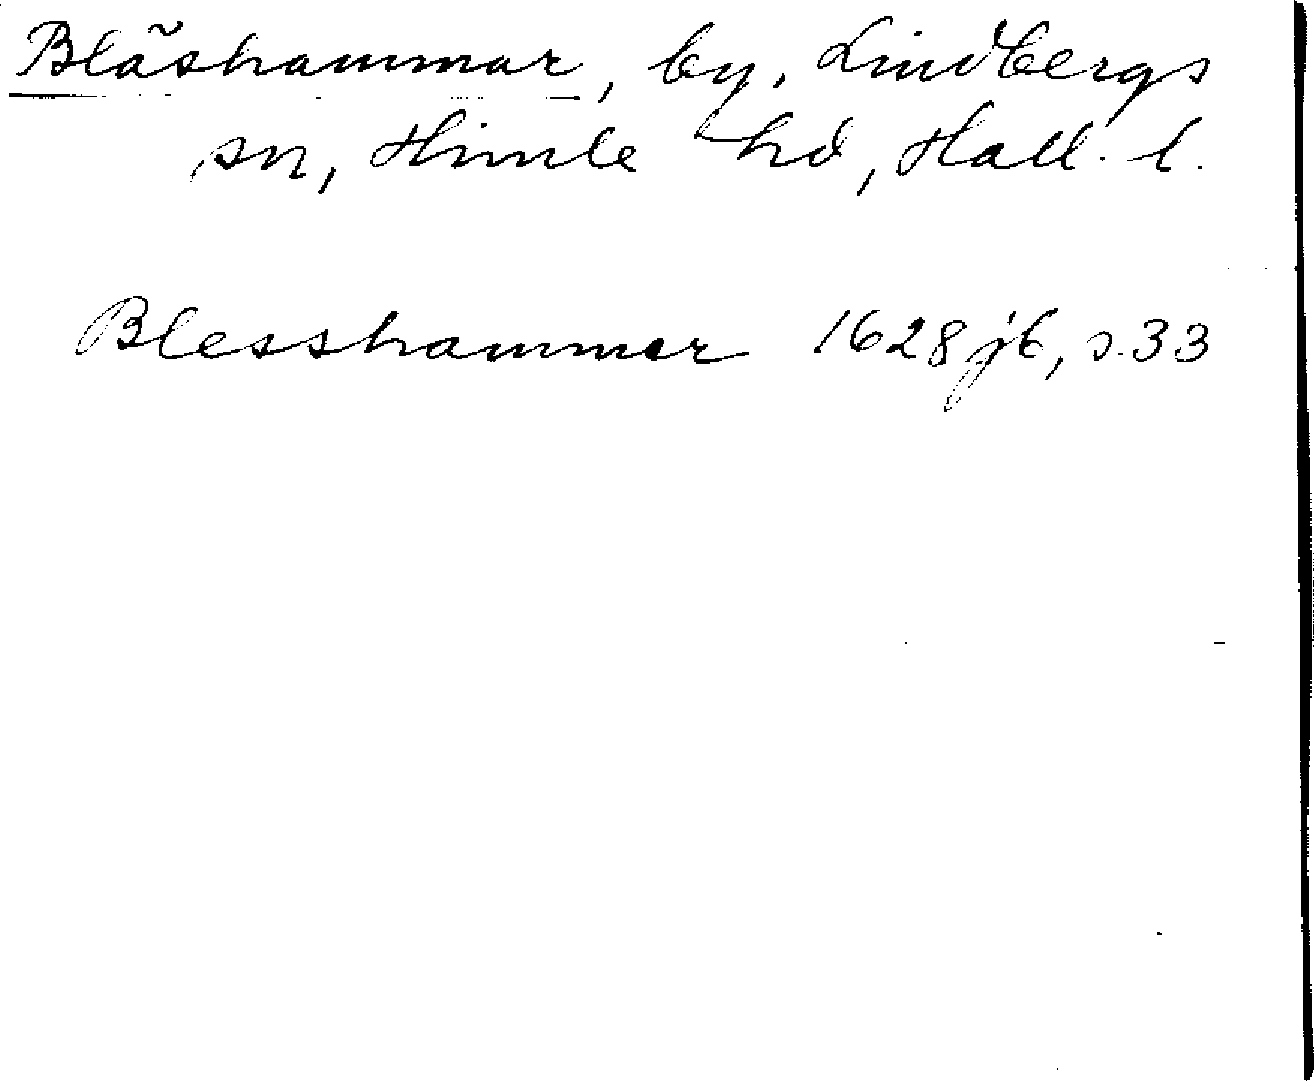 Bläshammar, by, Lindbergs
sn, Himle hd, Hall. l.
Blesshammer 1628 jb, s. 33